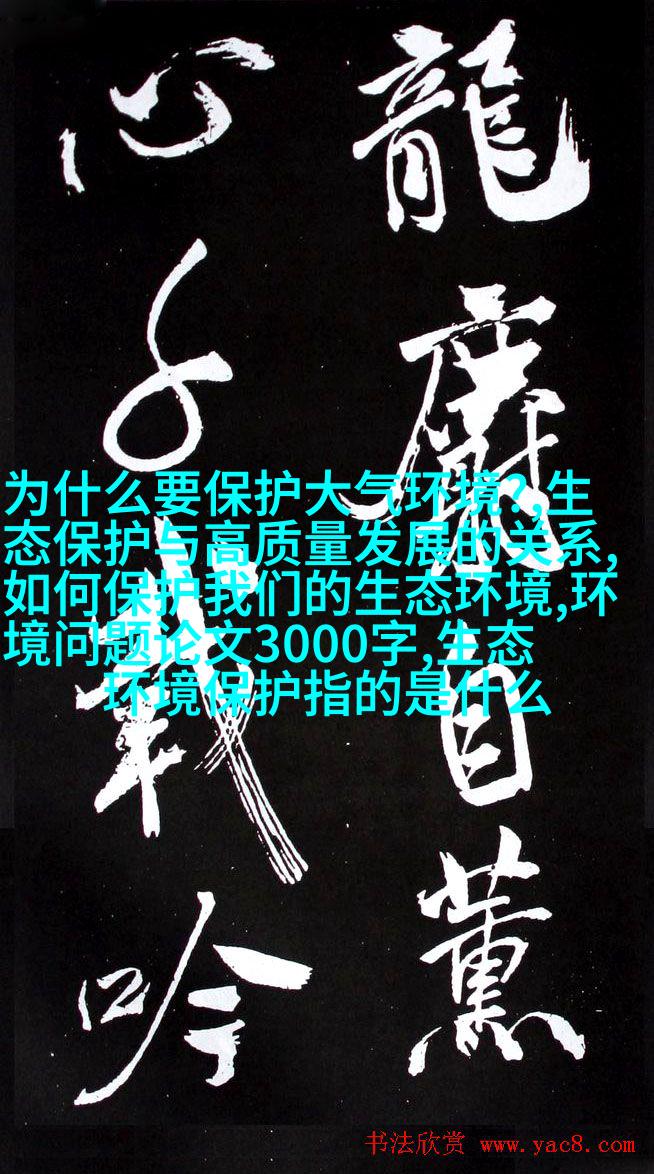 龍自薰
心千載吟
为什么要保护大气环境?,生
态保护与高质量发展的关系,
如何保护我们的生态环境,环
境问题论文3000字,生态
环境保护指的是什么
书法欣赏 www.yac8.com